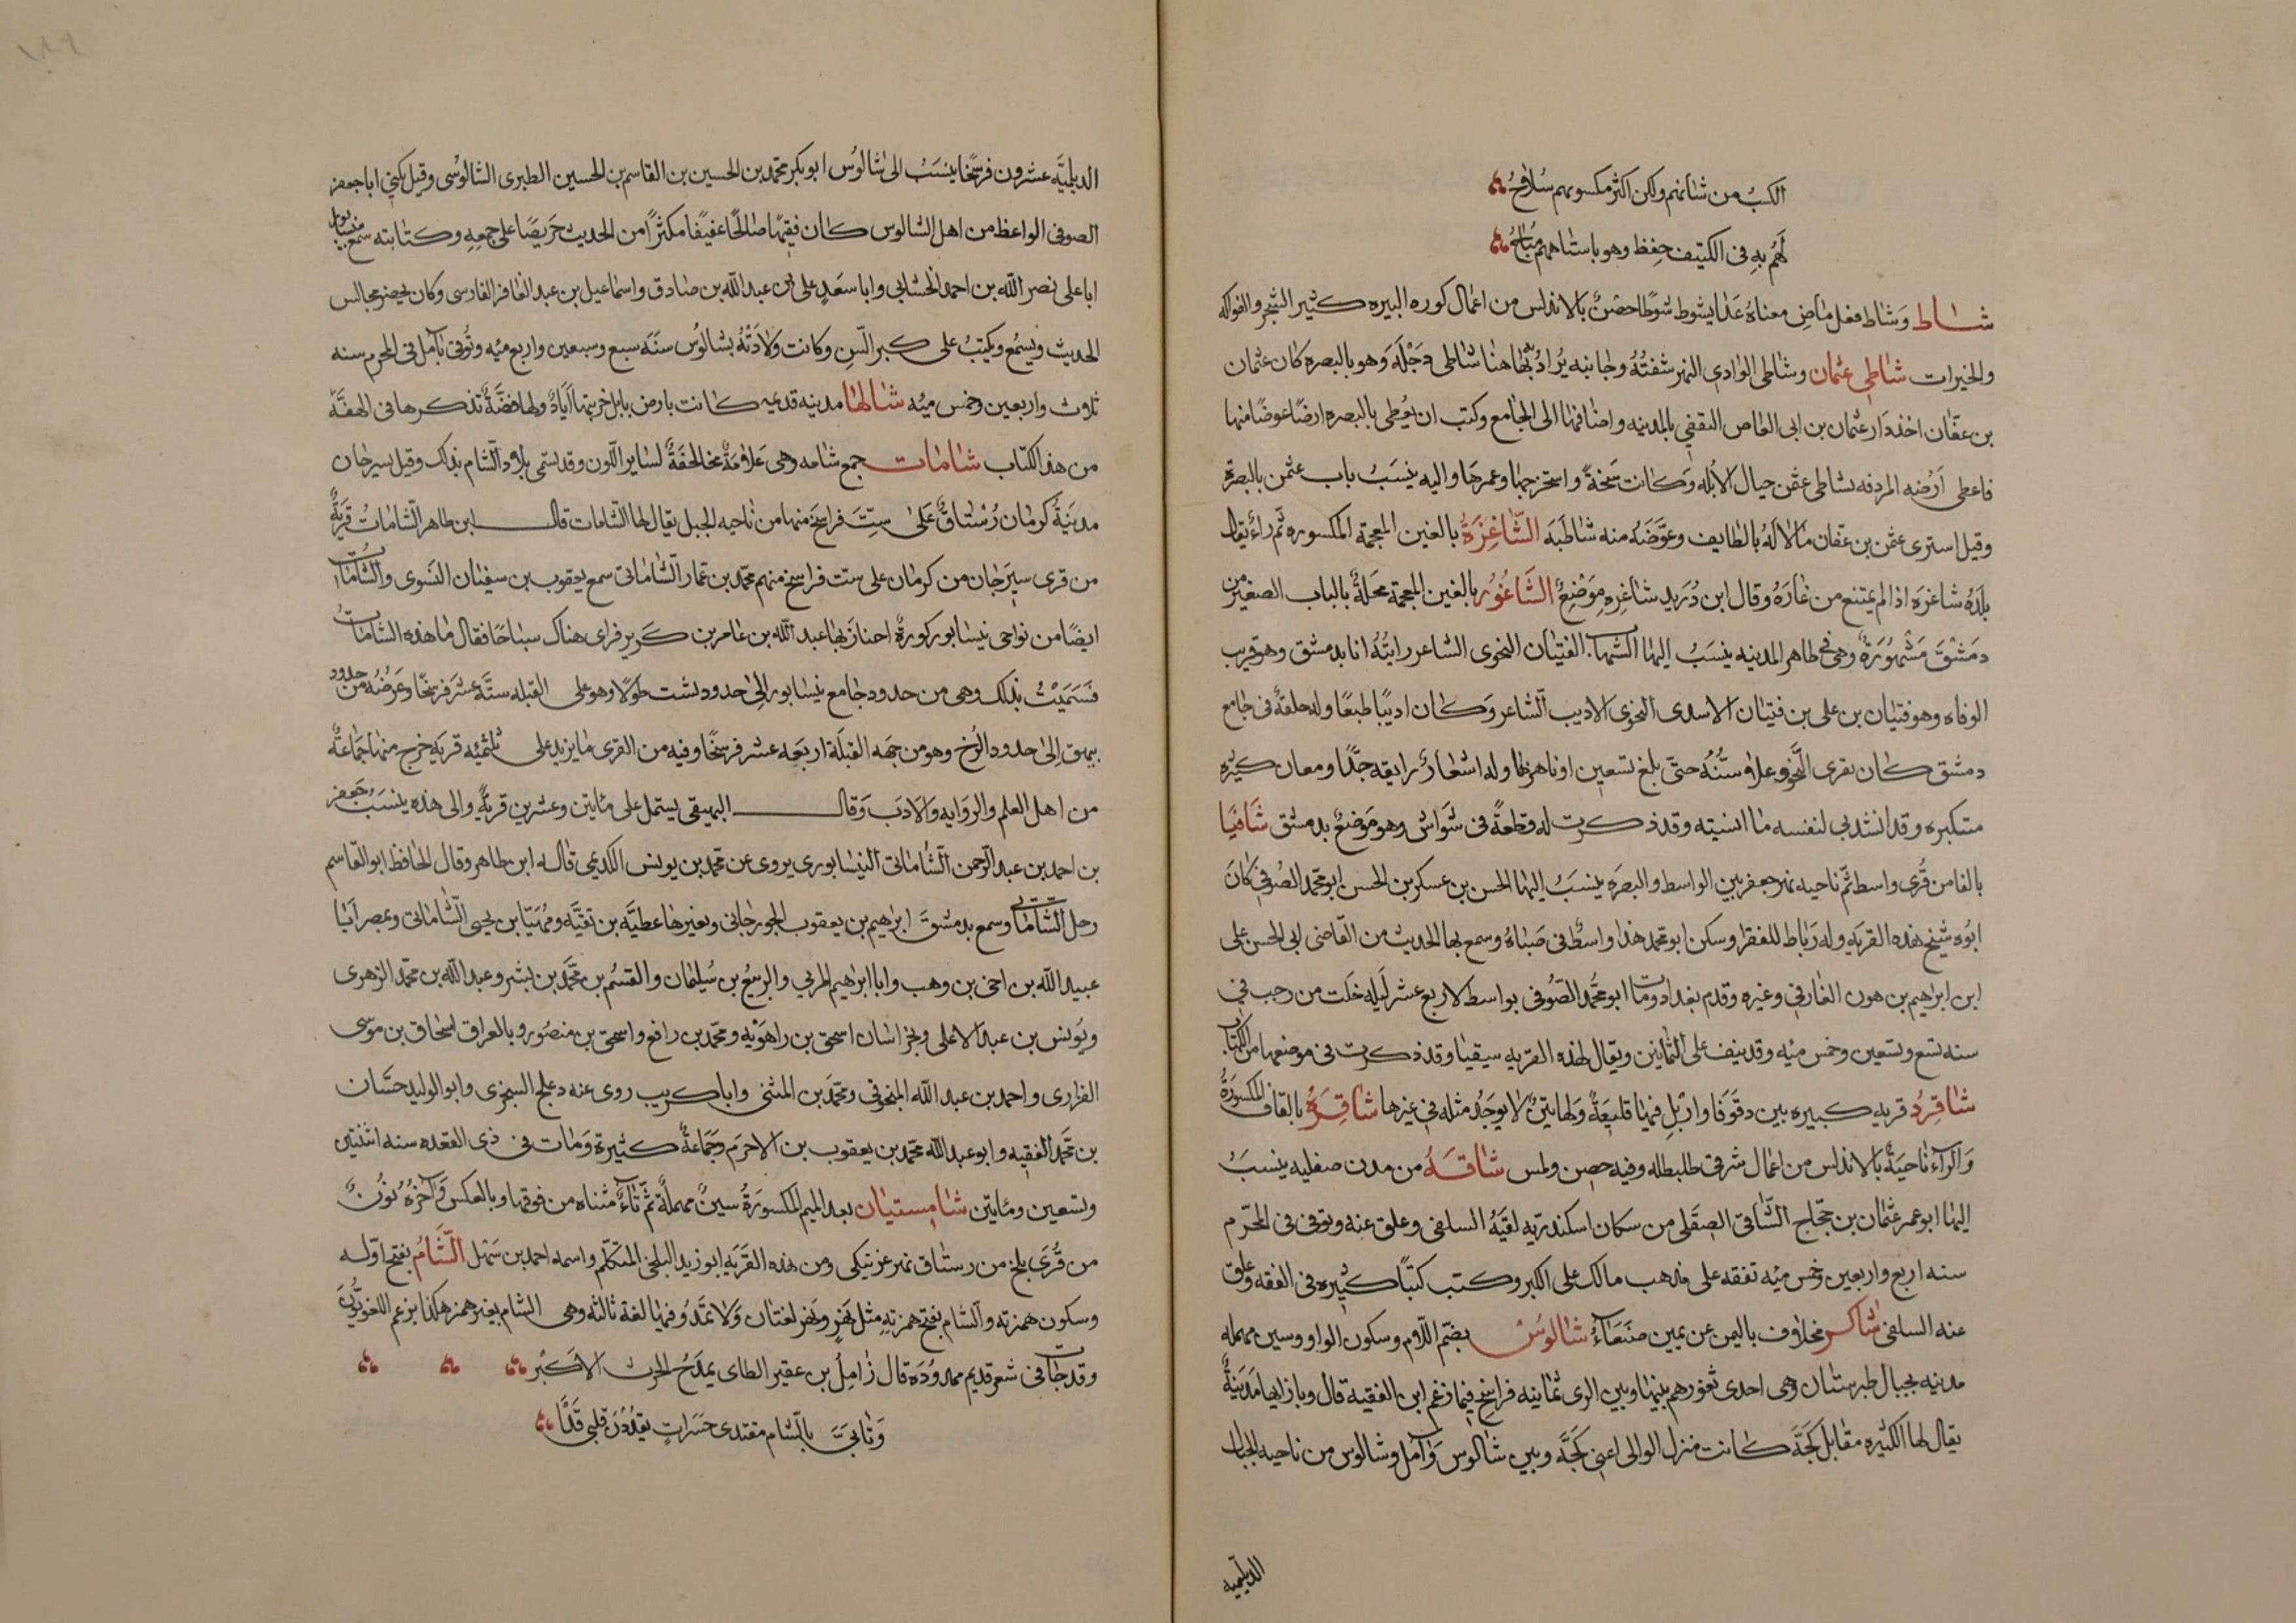 الكبُ من شانهم ولكن اكثر مكسوبهم سُلاحُ
لَهُم بِهِ فى الكتيف حِفظ وهو باستاههم مُبَاحُ
شاط وَشَاط فعل ماضٍ معناهُ عَدَا يشوط شَوطًا حصْنٌ بالاندلس من اعمال كوره البيره كثير الشجر والفواكه
والخيرات شاطى عثمان وشاطى الوادى النهر شفتُهُ وجانبه يُرادُ بِهِ هَاهنا شاطى دجْلَهَ وهو بالبصره كان عثمان
بن عفّان اخذ دَار عثمان بن ابى العاص الثقفي بالمدينه واضافها الى الجامع وكتب ان يُعطى بالبصره ارضًا عوضًا منها
فاعطى اَرْضه المعروفه بشاطى عثمن حيال الاُبله وَكانت سَبخةً واستخرجها وعمرَها واليه ينسَبُ باب عثمن بالبصرة
وقيل استرى عثمن بن عفان مَالاً لَهُ بالطايف وعوَّضَهُ منه شاطَبَه الشَّاغِرَةُ بالغين المعجمة المكسوره ثم راءٌ يقال
بلدهُ شاغرَه اذا لم يمتنع من غَارَهُ وقال ابن دُرَيدٍ شاغِرِهِ مَوْضِعٌ الشَّاغُوُر بالغين المعجمة محَلةٌ بالباب الصغير من
دمَشْقَ مَشْهُورَةٌ وهى في ظاهر المدينه ينسَبُ اليها الشهاب الفتيان النحوى الشاعر رايتُهُ انا بدمشق وهو قريب
الوفاه وهو فتيان بن على بن فتيان الاسدى النحوى الاديب الشاعر وَكان اديبًا طبعًا وله حلقةٌ فى جامع
دمشق كان يقرى النَّحو وعلا سنُّهُ حتى بلغ تسعين او ناهزها وله اشعارٌ رايقه جدًّا ومعان كثيره
متكبره وقد انشدنى لنفسه ما انسيته وقد ذكرت له قطعةً فى شَواش وهو مَوضعٌ بدمشق شَافيَا
بالفا من قُرى واسط ثم ناحيه نهر جعفر بين الواسط والبصرَه ينسَبُ اليها الحسن بن عسكر بن الحسن ابو محمد الصُوفى كَانَ
ابوُه شيخ هذه القريه وله رَباط للفقرا وسكن ابو محمد هذا واسطٌ فى صَبَاهُ وسمع بها الحديث من القاضى ابى الحسن على
ابن ابرهيم بن هون الفارقي وغيره وقدم بغداد ومات ابو محُمد الصّوفى بواسط لاربع عشر لَيله خَلَت من رجب في
سنه تسع وتسعين وخمس ميَه وقد نيف على الثمانين ويقال لهذه القريه سيقيا وقد ذكرت فى موضعها من الكتاب
شاقِرْدُ قريه كبيره بين دقوقَا واربْلِ فيها قليعَةٌ وَبها بتنٌ لا يوجَدُ مثله في غيرها شاقِرَهُ بالقاف المكسورَهُ
وَالرآء ناحيَةٌ بالاندلس من اعمال شرقى طلبطله وفيه حصن ولمس شَاقَهُ من مدن صقليه ينسَبُ
اليها ابو عمر عثمان بن حجّاج الشّاقى الصِقَلى من سكان اسكندريّه لقيَهُ السلفى وعلق عنه وتوفى فى المحَرّم
سنه اربع واربعين وخمس ميَه تفقه على مذهب مالك على الكبر وكتب كتبًا كثيره فى الفقه وعلّق
عنه السلفى شاكر مخلاف باليمن عن يمين صنَعَاءُ شالوُسْ بضم اللام وسكون الواو وسين مهمله
مدينه بجبال طبرستان وهى احدى ثغورهم بينها وبين الرى ثمانيه فراسِخ فيما زعم ابن الفقيه قال وبازايها مَدَينةُ
يقال لها الكثيره مقابل كَجَّهَ كانت منزل الوالى اعنى كَجَّه وبين شالوس وَآمُل وشالوس من ناحيه الجبال
الديلميه
الديلميَّه عشرون فرسَخًا ينسَبُ الى شالوُس ابو بكر محمد بن الحسين بن القاسم بن الحسين الطبرى الشالوُسى وقيل يكنى ابا جعفر
الصوفى الواعظ من اهل الشالوس كان فقيهًا صالحًا عفيفًا مكثرًا من الحديث حَريصًا على جمعهِ وكتابته سمع بنيسابور
ابا على نصر الله بن احمد الخشنابى وابا سَعَدٍ على بن عبد الله بن صادق واسماعيل بن عبد الغافر الفارسى وكان يحضر مجالس
الحديث ويسمُع ويكتبُ على كبر السّن وكانت ولادَتُهُ بشالوُس سنَه سبع وسبعين واربع ميَه وتُوفى بآمل فى المحرم سنه
ثلاث واربعين وخمس ميَه شالها مدينه قديمه كانت بارض بابل خربتها اَيَادٌ ولها قصَّةٌ تذكرها فى الهفّه
من هذا الكتاب شامات جمع شامه وهى عَلامَةٌ مخالفَةٌ لساير اللّون وقد يسَمى بلاد الشام بذلك وقيل بسيرجان
مديَنةُ كرمان رُسْتاقٌ عَلى سِتّه فراسخَ منها من ناحيه الجبل يقال لها الشامات قال ابن طاهر الشاماتُ قريةٌ
من قرى سيرَجان من كرمان على ستت فراسخ منهم محمّد بن عمار الشاماتى سمع يعقوب بن سفيان النسَوى والشامات
ايضًا من نواحى نيسابور كورةٌ اجتاز بها عبد الله بن عامر بن كريز فراى هناك سباخًا فقال ما هذه الشامات
فسَمّيَتْ بذلك وهى من حدود جامع نيسابور إلى حدود بشت طولاً وهو على القبله ستّه عشَر فرسخًا وعَرضُه من حدود
بيهق اِلى حدود الرخ وهو من جهَه القبلَة اربعه عشر فرسخًا وفيه من القرى ما يزيد على ثلثميَه قريه خرج منها جَماعةٌ
من اهل العلم والروايه والادَب وَقال البيهقى يشتمل على مايتين وعشرين قريةً والى هذه ينسَبُ جَعفر
بن احمد بن عبد الرحمن الشاماتى النيسابورى يروى عن محمد بن يونس الكديمى قاله ابن طاهر وقال الحافظ ابو القاسم
رحل الشاماتى وسمع بدمشقَ ابرهيم بن يعقوب الجورجانى وبغيرها عطيّه بن بقيَّه ومُهَيّا بن يحيى الشّاماتى وبمصر اَبَا
عبيد الله بن اخى بن وهب وابا ابرهيم المزني والربيعُ بن سُليمان والقسْم بن محمَّد بن بشر وعبد الله بن محمّد الزهرى
ويُونس بن عبد الاعلى وبخراسان اسحق بن راهوَيْه ومحمّد بن رافع واسحق بن منصُور وبالعراق اسحاق بن موسى
الفزارى واحمد بن عبد الله المنجوفى ومحمّد بن المثنى وابا كريب روى عنه دعلج السجزى وابو الوليد حسّان
بن محَمّد الفقيه وابو عبد الله محمّد بن يعقوب بن الاخرَم وجَمَاعَةٌ كثيرة وَمَات فى ذى القعده سنه اثنتين
وتسعين ومايتين شامِستيان بعد الميم المكسورَةُ سينٌ مهملةٌ ثمّ تآءٌ مثناه من فوقها وبالعكس وَآخرُهُ نونٌ
من قُرَى بلخ من رستاق نهر غربنكى ومن هذه القَريَه ابو زيد البلخى المتكلّم واسمه احمد بن سَهْل الشَّامُ بفتح اوّله
وسكون همزته والشام بفتح همزتِهِ مثل نَهْرٍ ونَهَر لغتان وَلا تمَدُ وفيها لغة ثالثه وهى الشام بغير همز هكذا يزعم اللغويُّونَ
وقد جَات فى شعر قديم ممدوُدَه قال زامِلُ بن عقير الطاى يمدَحُ الحرث الاكبْر
وَتابىَ بالشام مفتدى حَسَراتٍ يقدُدْنَ قلبى قدًّا